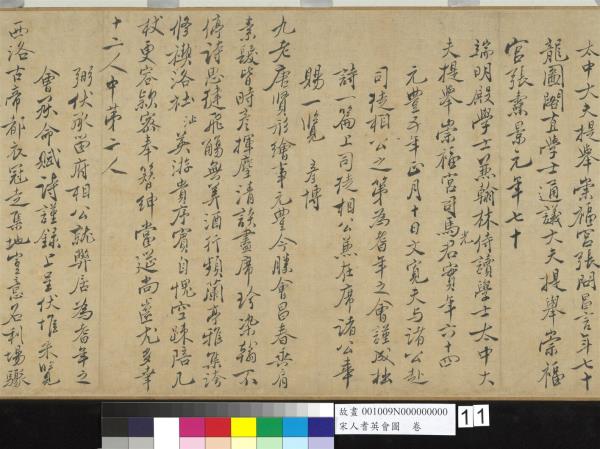 太中大夫提舉崇福宮張問昌言年七十
龍圖閣直學士通議大夫提舉崇福
宮張燾景元年七十
端明殿學士兼翰林侍讀學士太中大
夫提舉崇福宮司馬光君實年六十四
元豐五年正月十日文寬夫与諸公赴
司徒相公之第為耆年之會謹成拙
詩一篇上司徒相公兼在席諸公奉
賜一覽 彥博
九老唐賢形繪事元豐今勝會昌春垂肩
素髮皆時彥揮麈清談盡席珍染翰不
停詩思健飛觴無筭酒行頻蘭亭雅集誇
修禊洛社英游貴序賓自愧空疎陪几
杖更容款密奉簪紳當筵尚齒尤多幸
十二人中第二人
弼伏承留府相公就弊居為耆年之
會承命賦詩謹錄上呈伏惟采覽
西洛古帝都衣冠走集地豈意名利場驟
故畫 001009N000000000
宋人耆英會圖 卷
11